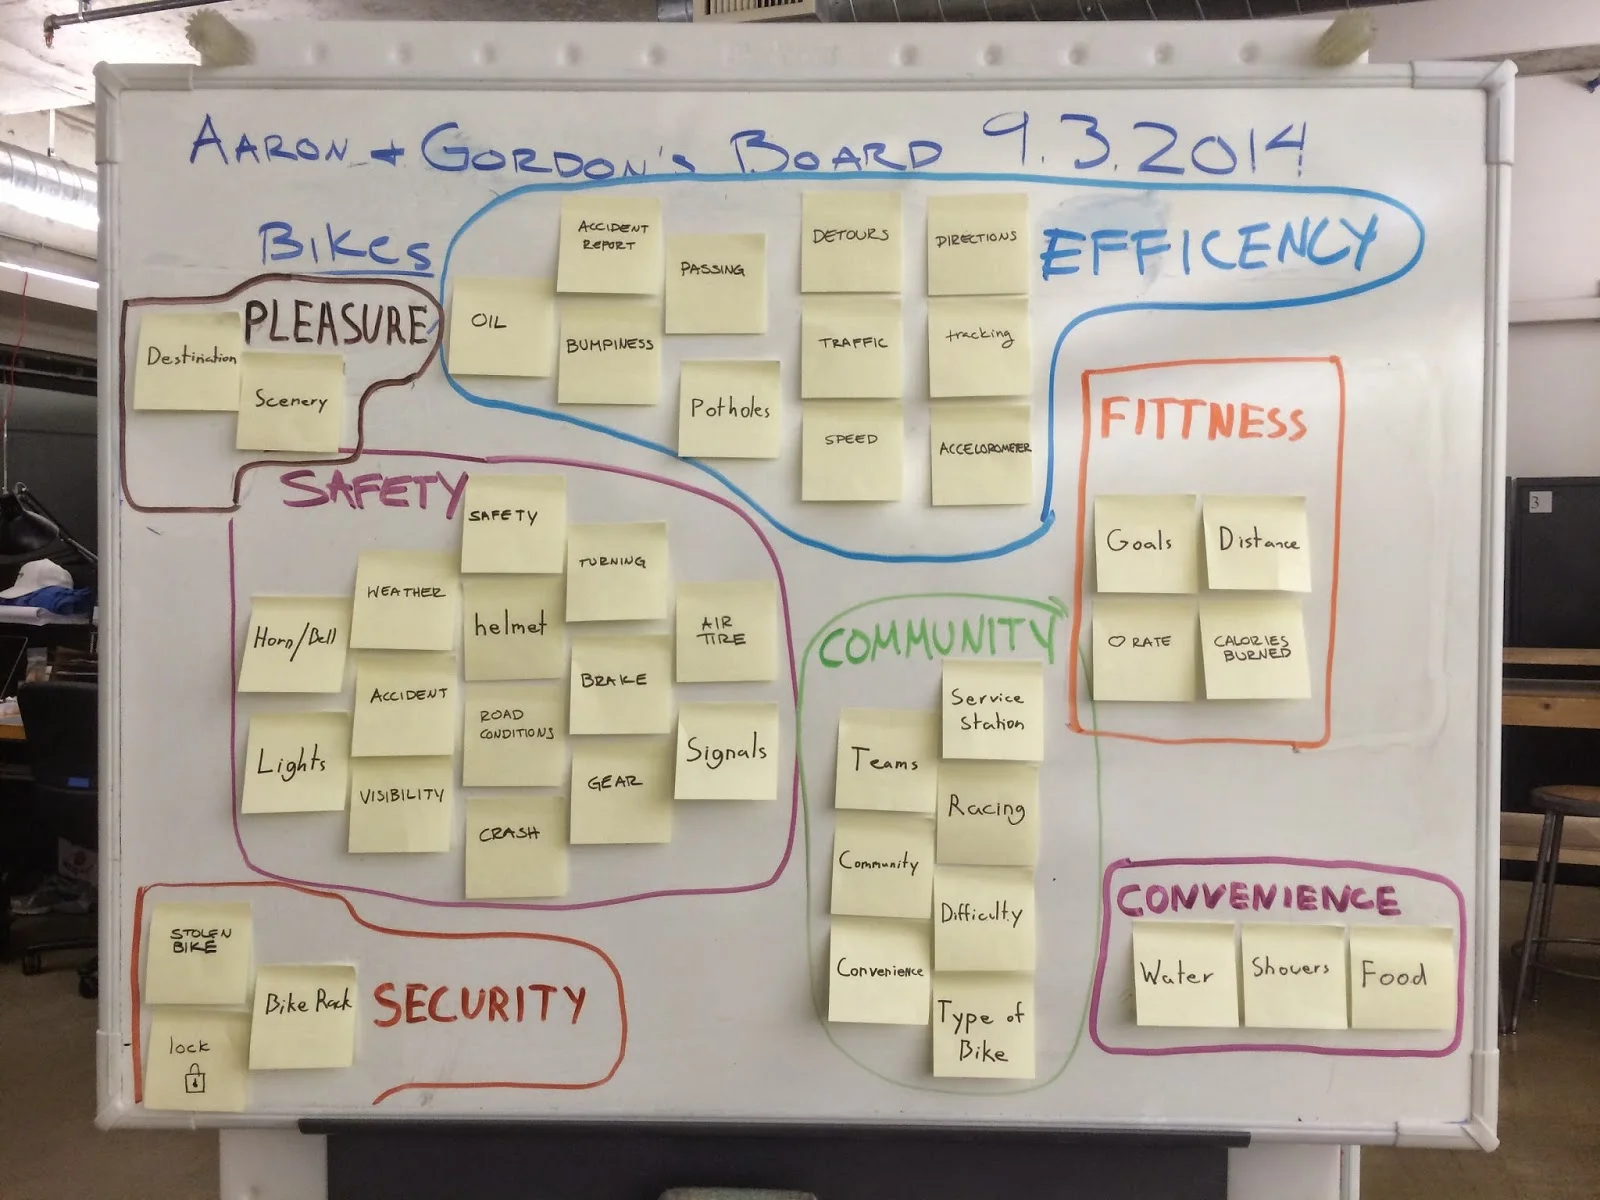 AARON + GORDON'S BOARD 9.3.2014
BIKES
EFFICENCY
ACCIDENT
REPORT
PASSING
DETOURS
DIRECTIONS
OIL
BUMPINESS
TRAFFIC
tracking
Potholes
SPEED
ACCELOROMETER
PLEASURE
Destination
Scenery
FITTNESS
Goals
Distance
♡ RATE
CALORIES
BURNED
SAFETY
SAFETY
TURNING
WEATHER
helmet
AIR
TIRE
Horn/Bell
ACCIDENT
ROAD
CONDITIONS
BRAKE
Signals
Lights
VISIBILITY
CRASH
GEAR
COMMUNITY
Service
Station
Teams
Racing
Community
Difficulty
Convenience
Type of
Bike
SECURITY
STOLEN
BIKE
Bike Rack
lock
CONVENIENCE
Water
Showers
Food
3